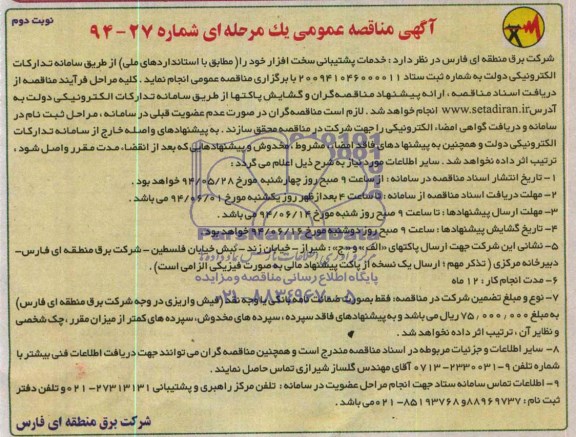 نوبت دوم
آگهی مناقصه عمومی یك مرحله ای شماره ۲۷-۹۴
شرکت برق منطقه ای فارس در نظر دارد : خدمات پشتیبانی سخت افزار خود را( مطابق با استانداردهای ملی) از طریق سامانه تدارکات
الکترونیکی دولت به شماره ثبت ستاد ۲۰۰۹۴۱۰۴۶۰۰۰۰۱۱ با برگزاری مناقصه عمومی انجام نماید . کلیه مراحل فرآیند مناقصه از
دریافت اسناد مناقصه ، ارائه پیشنهاد مناقصه گران و گشایش پاکتها از طریق سامانه تدارکات الکترونیکی دولت به
آدرس www.setadiran.ir انجام خواهد شد . لازم است مناقصه گران در صورت عدم عضویت قبلی در سامانه ، مراحل ثبت نام در
سامانه و دریافت گواهی امضاء الکترونیکی را جهت شرکت در مناقصه محقق سازند . به پیشنهادهای واصله خارج از سامانه تدارکات
الکترونیکی دولت و همچنین به پیشنهادهای فاقد امضاء ، مشروط ، مخدوش و پیشنهادهائی که بعد از انقضاء مدت مقرر واصل شود ،
ترتیب اثر داده نخواهد شد . سایر اطلاعات مورد نیاز به شرح ذیل اعلام می گردد :
۱- تاریخ انتشار اسناد مناقصه در سامانه : از ساعت ۹ صبح روز چهارشنبه مورخ ۹۴/۰۵/۲۸ خواهد بود .
۲- مهلت دریافت اسناد مناقصه از سامانه : تا ساعت ۴ بعداز ظهر روز یکشنبه مورخ ۹۴/۰۶/۰۱ می باشد .
۳- مهلت ارسال پیشنهادها : تا ساعت ۹ صبح روز شنبه مورخ ۹۴/۰۶/۱۴ می باشد .
۴- تاریخ گشایش پیشنهادها : ساعت ۹ صبح روز دوشنبه مورخ ۹۴/۰۶/۱۶ خواهد بود .
۵- نشانی این شرکت جهت ارسال پاکتهای «الف» و «ج» : شیراز - خیابان زند - نبش خیابان فلسطین - شرکت برق منطقه ای فارس-
دبیرخانه مرکزی ( تذکر مهم : ارسال یک نسخه از پاکت پیشنهاد مالی به صورت فیزیکی الزامی است) .
۶- مدت انجام کار : ۱۲ ماه
۷- نوع و مبلغ تضمین شرکت در مناقصه: فقط بصورت ضمانت نامه بانکی یا وجه نقد (فیش واریزی در وجه شرکت برق منطقه ای فارس)
به مبلغ ۷۵/۰۰۰/۰۰۰ ریال می باشد و به پیشنهادهای فاقد سپرده ، سپرده های مخدوش، سپرده های کمتر از میزان مقرر ، چک شخصی
و نظایر آن ، ترتیب اثر داده نخواهد شد .
۸- سایر اطلاعات و جزئیات مربوطه در اسناد مناقصه مندرج است و همچنین مناقصه گران می توانند جهت دریافت اطلاعات فنی بیشتر با
شماره تلفن ۹-۲۳۳۰۰۳۱-۰۷۱۳ آقای مهندس گلساز شیرازی تماس حاصل نمایند .
۹- اطلاعات تماس سامانه ستاد جهت انجام مراحل عضویت در سامانه : تلفن مرکز راهبری و پشتیبانی ۲۷۳۱۳۱۳۱-۰۲۱ و تلفن دفتر
ثبت نام : ۸۸۹۶۹۷۳۷ و ۸۵۱۹۳۷۶۸-۰۲۱ می باشد .
شرکت برق منطقه ای فارس
ParsNamadData
پایگاه اطلاع رسانی مناقصه و مزایده
۰۲۱-۸۸۳۴۹۶۷۰-۵